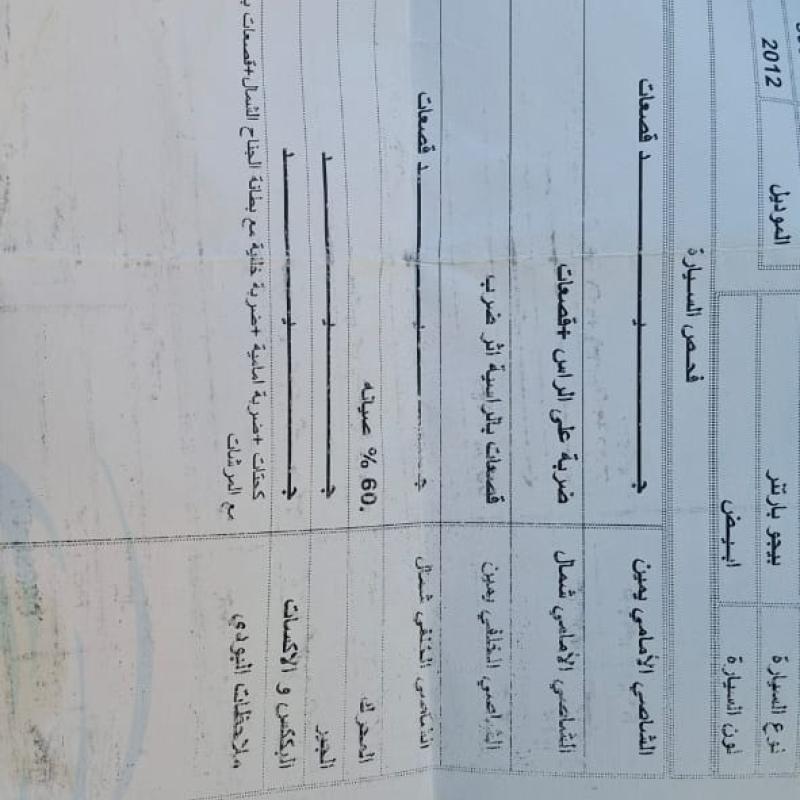 نوع السيارة بيجو بارتنر الموديل 2012
لون السيارة ابيض
فحص السيارة
الشاصي الأمامي يمين جـــــيـــــد قصعات
الشاصي الأمامي شمال ضربة على الراس +قصعات
الشاصي الخلفي يمين قصعات بالراسية اثر ضرب
الشاصي الخلفي شمال جـــــيـــــد قصعات
المحرك 60.% صيانه
الجير جـــــيـــــد
البككس و الاكسات جـــــيـــــد
ملاحظات البودي كحتات +ضربة امامية +ضربة خلفية مع بطانة الجناح الشمال+قصعات
مع المرشات